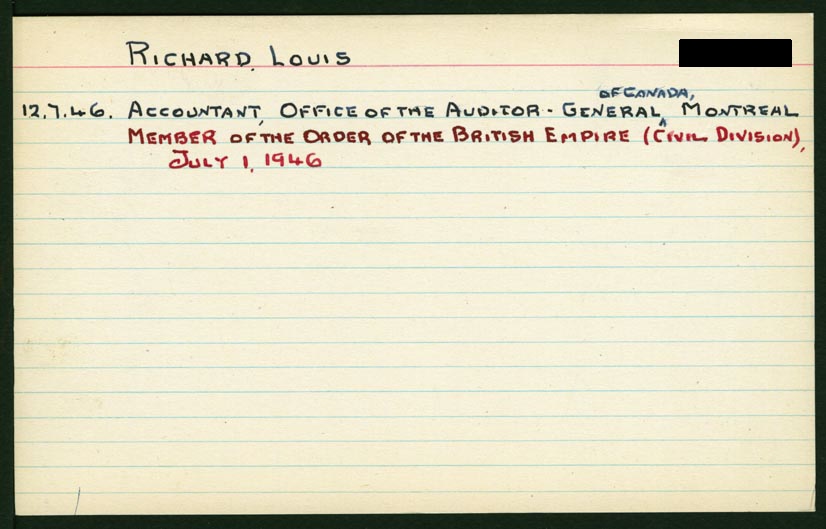 RICHARD, LOUIS
OF CANADA,
12.7.46. ACCOUNTANT, OFFICE OF THE AUDITOR-GENERAL, MONTREAL
MEMBER OF THE ORDER OF THE BRITISH EMPIRE (CIVIL DIVISION),
JULY 1, 1946